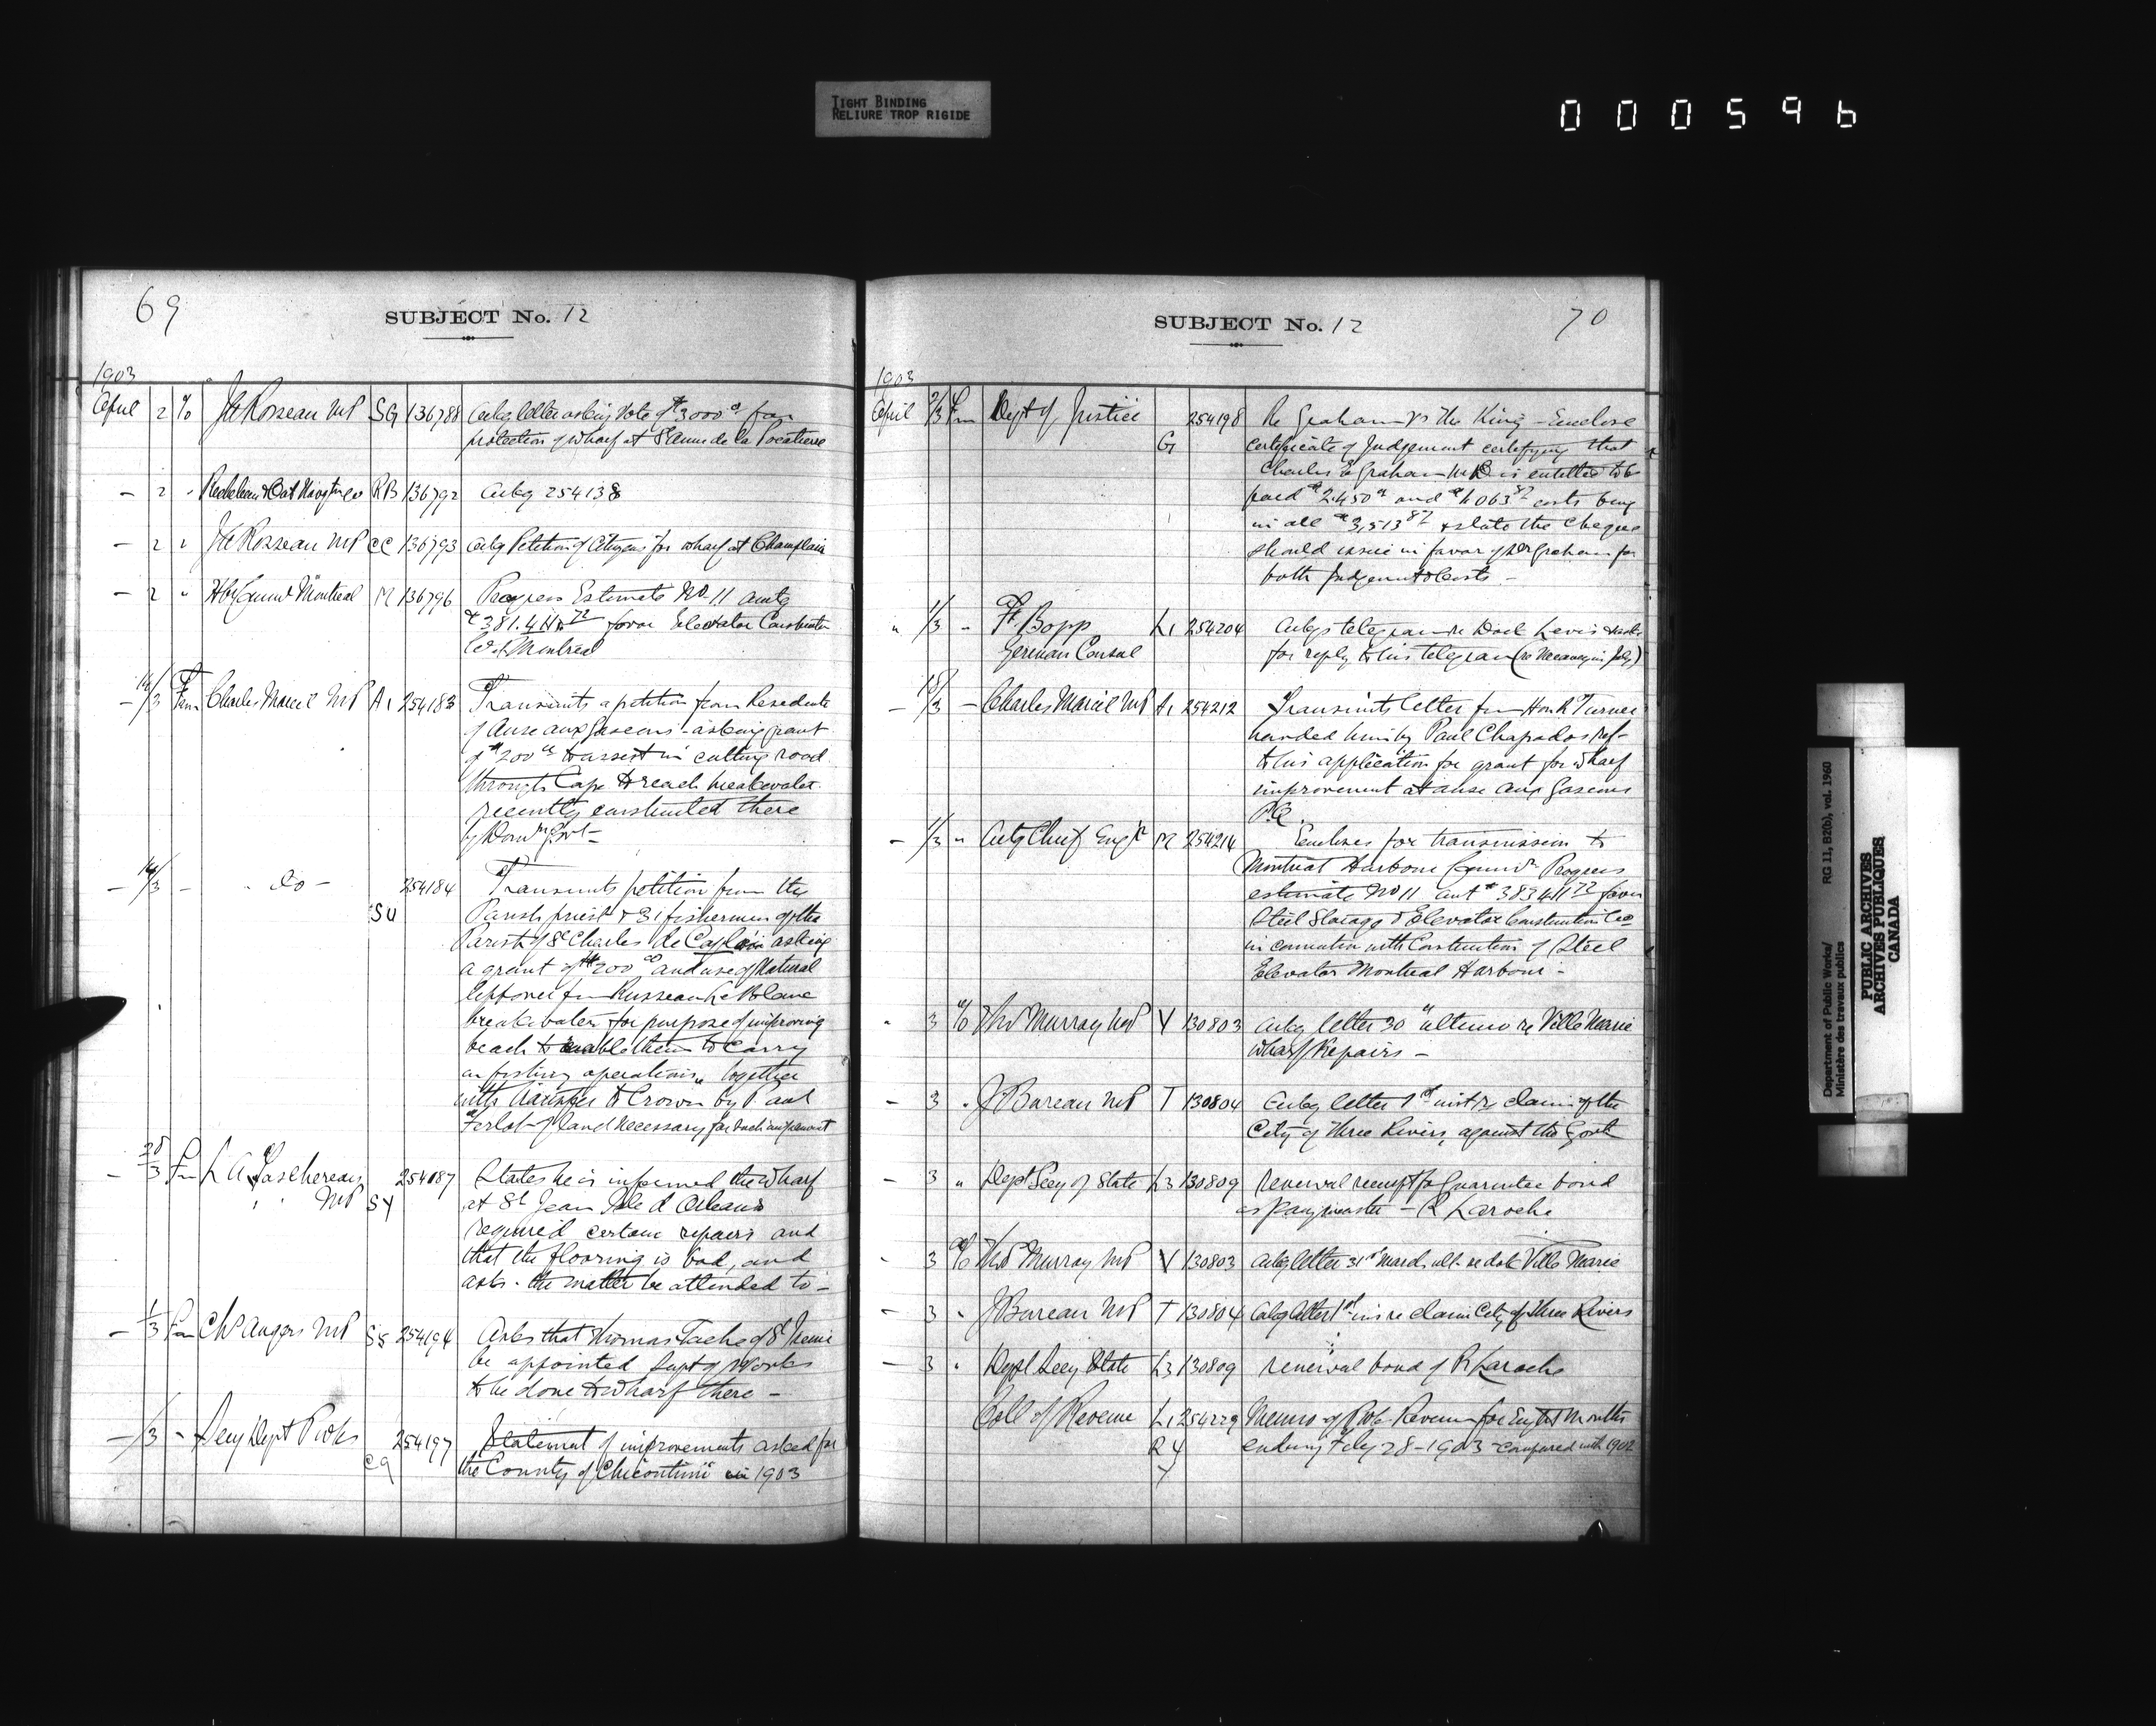 TIGHT BINDING
RELIURE TROP RIGIDE
000596
69
SUBJECT No. 12
1903
April 2 % J A Rosseau MP SG 136788 Ackg letter asking Vote of $3000 for
protection of wharf at St Anne de la Pocatiere
- 2 " Richelieu & Ont Navgtn Co RB 136792 Ackg 254138
- 2 " J A Rosseau MP CC 136793 Ackg Petition of Citizens for wharf at Champlain
- 2 " Hbr Commrs Montreal M 136796 Progress Estimate No. 11 amtg
favor Elevator Construction
Co of Montreal
- 14/3 Frm Charles Marcil MP A1 254183 Transmits a petition from Residents
of Anse aux Gascons - asking grant
of $200 to assist in cutting road
through Cape to reach breakwater
recently constructed there
by Domn Govt -
- 14/3 - - do - 254184 Transmits petition from the
SU Parish priest & 31 fishermen of the
Parish of St Charles de Caplain asking
a grant of $200 and use of Material
left over frm Russeau Le Blanc
breakwater for purpose of improving
beach to enable them to carry
on fishing operations, together
with transfer to Crown by Paul
Ferlot of land necessary for such improvemt
- 28/3 Frm L A Taschereau 254187 States he is informed the wharf
" " MP SY at St Jean Isle d'Orleans
required certain repairs and
that the flooring is bad, and
asks the matter be attended to -
- 1/3 Frm Chs Angers MP SS 254194 Asks that Thomas Tache of St Irenee
be appointed Supt of Works
to be done to wharf there -
- /3 - Secy Dept P Wks 254197 Statement of improvements asked for
CQ the County of Chicoutimi in 1903
SUBJECT No. 12
70
1903
April 2/3 Frm Dept of Justice 254198 Re Graham vs The King - Enclose
G certificate of Judgement certifying that
Charles E Graham is entitled to be
paid $2,450 and $1,063.87 costs being
in all $3,513.87 & state the Cheque
should issue in favor of Graham for
both Judgemt & Costs -
" 1/3 - F. Bopp L1 254204 Ackgs telegram re Dock Levis & asks
German Consul for reply to his telegram
- 15/3 - Charles Marcil MP A1 254212 Transmits letter frm Hon R Turner
handed him by Paul Chapados ref-
to his application for grant for wharf
improvement at Anse aux Gascons
P.Q.
- 1/3 " Actg Chief Engr M 254214 Encloses for transmission to
Montreal Harbour Commrs Progress
estimate No 11 amt favor
Steel Storage & Elevator Construction Co
in connection with Construction of Steel
Elevator Montreal Harbour -
" 3 % Thos Murray MP V 130803 Ackg letter 30th ultimo re Ville Marie
wharf Repairs -
- 3 " J Bureau MP T 130804 Ackg letter 1st inst re claim of the
City of Three Rivers, against the Govt
- 3 " Dept Secy of State L3 130809 renewal receipt for Guarantee bond
as Paymaster - R Laroche
- 3 % Thos Murray MP V 130803 Ackg letter 31st March ult- re dock Ville Marie
- 3 " J Bureau MP T 130804 Ackg letter 1st ins re claim City of Three Rivers
- 3 " Dept Secy State L3 130809 renewal bond of R Laroche
Coll of Revenue L1 254229 Memo of Pub. Revenue for Eight Months
R Y ending Feby 28-1903 compared with 1902
Y
Department of Public Works/
Ministère des travaux publics
RG 11, B2(b), vol. 1960
PUBLIC ARCHIVES
ARCHIVES PUBLIQUES
CANADA